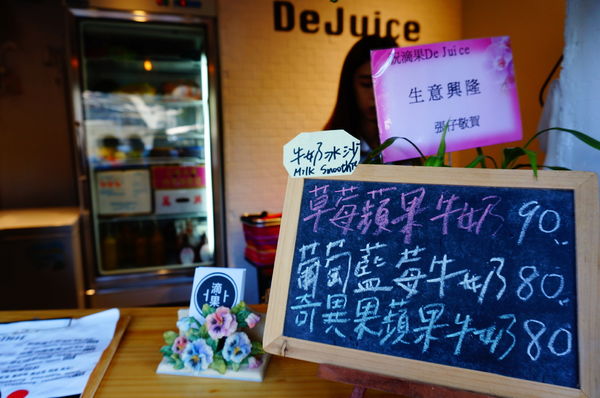 DeJuice
祝滴果De Juice
生意興隆
張仔敬賀
牛奶冰沙
Milk Smoothie
草莓蘋果牛奶 90
葡萄藍莓牛奶 80
奇異果蘋果牛奶 80
滴果